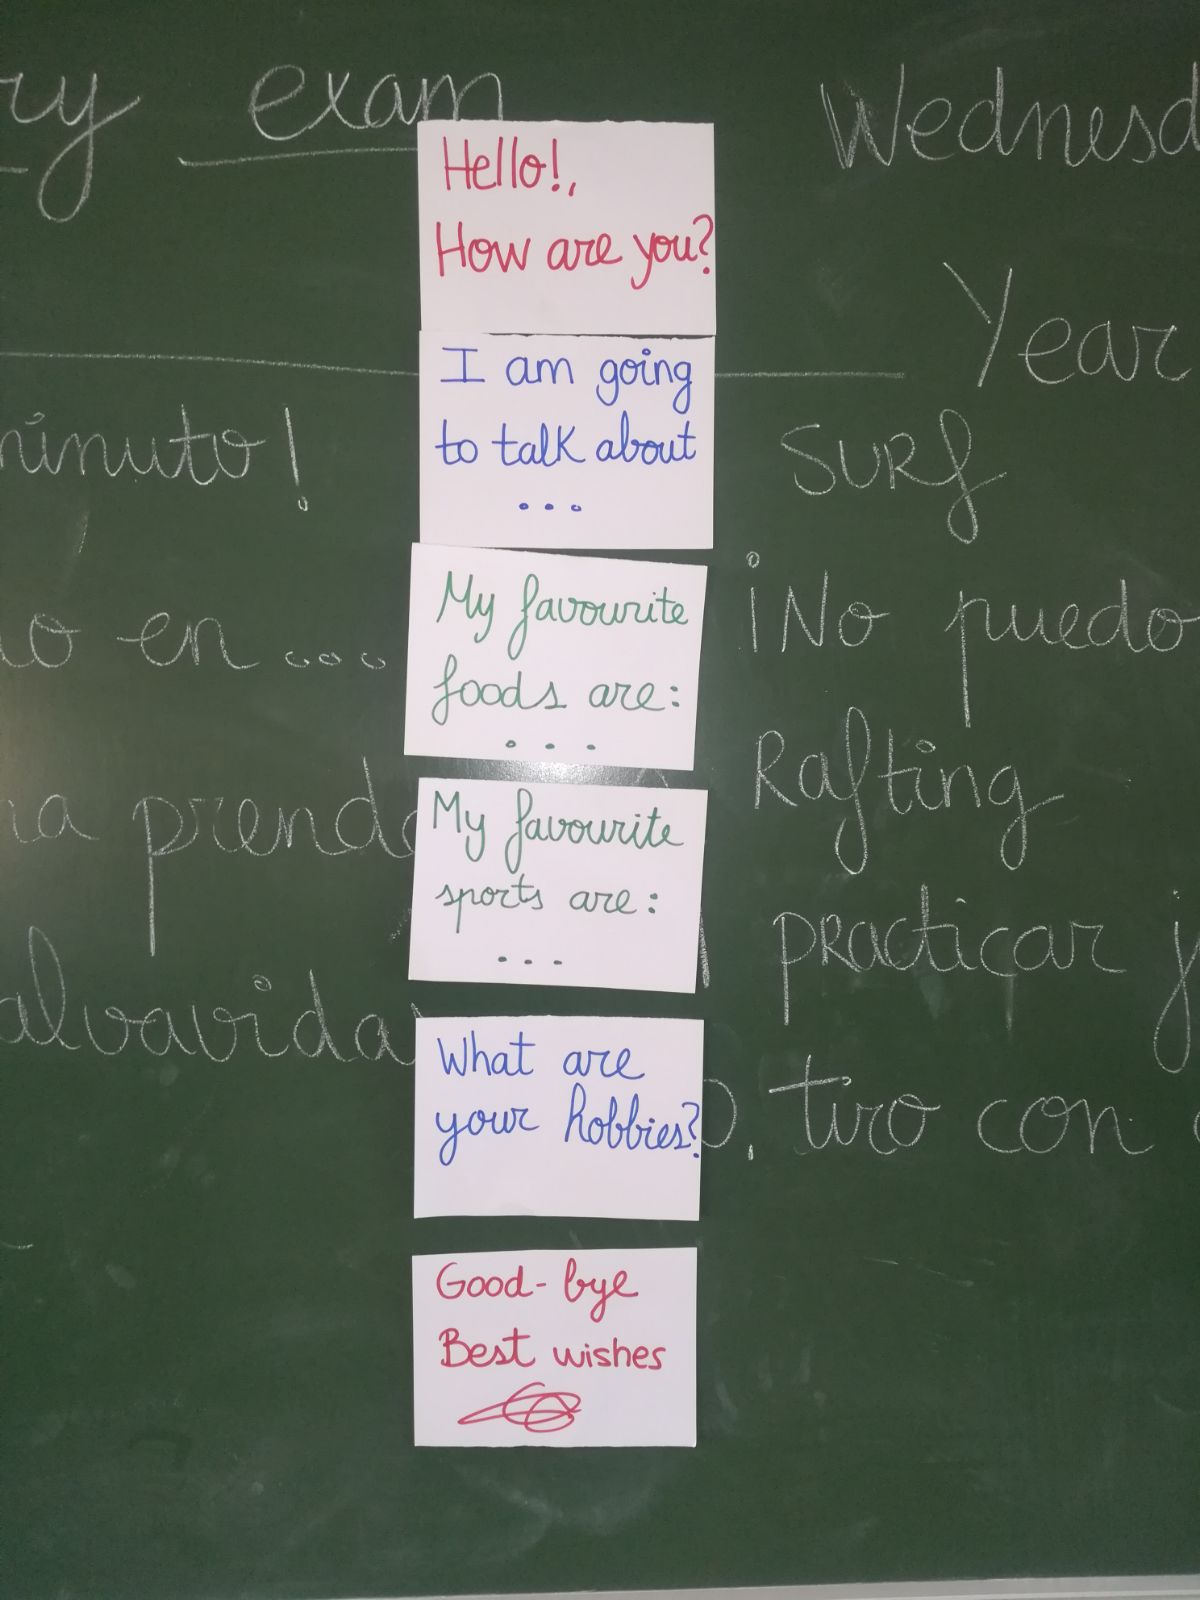 exam
Wednesd
Hello!,
How are you?
Year
I am going
to talk about
...
minuto!
SURF
My favourite
foods are:
...
en ...
¡No puedo
My favourite
sports are:
...
Rafting
practicar j
What are
your hobbies?
tiro con
Good-bye
Best wishes